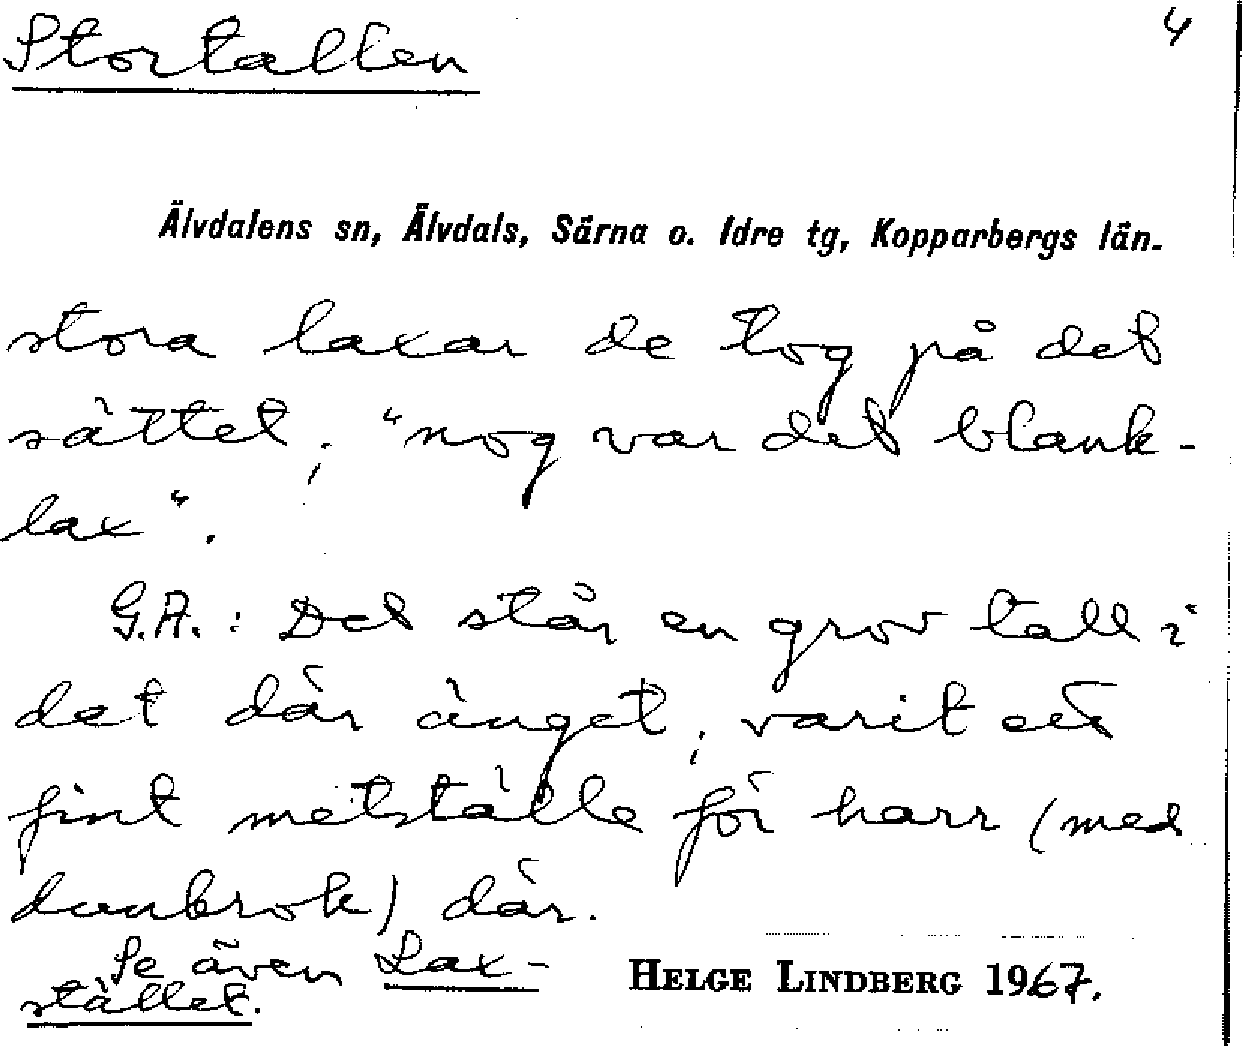 Stortallen 4
Älvdalens sn, Älvdals, Särna o. Idre tg, Kopparbergs län.
stora laxar de tog på det
sättet, "nog var det blank-
lax".
G.A.: Det står en grov tall i
det där änget, varit ett
fint metställe för harr (med
dunkrok) där.
Se även Lax-
stället.
HELGE LINDBERG 1967.